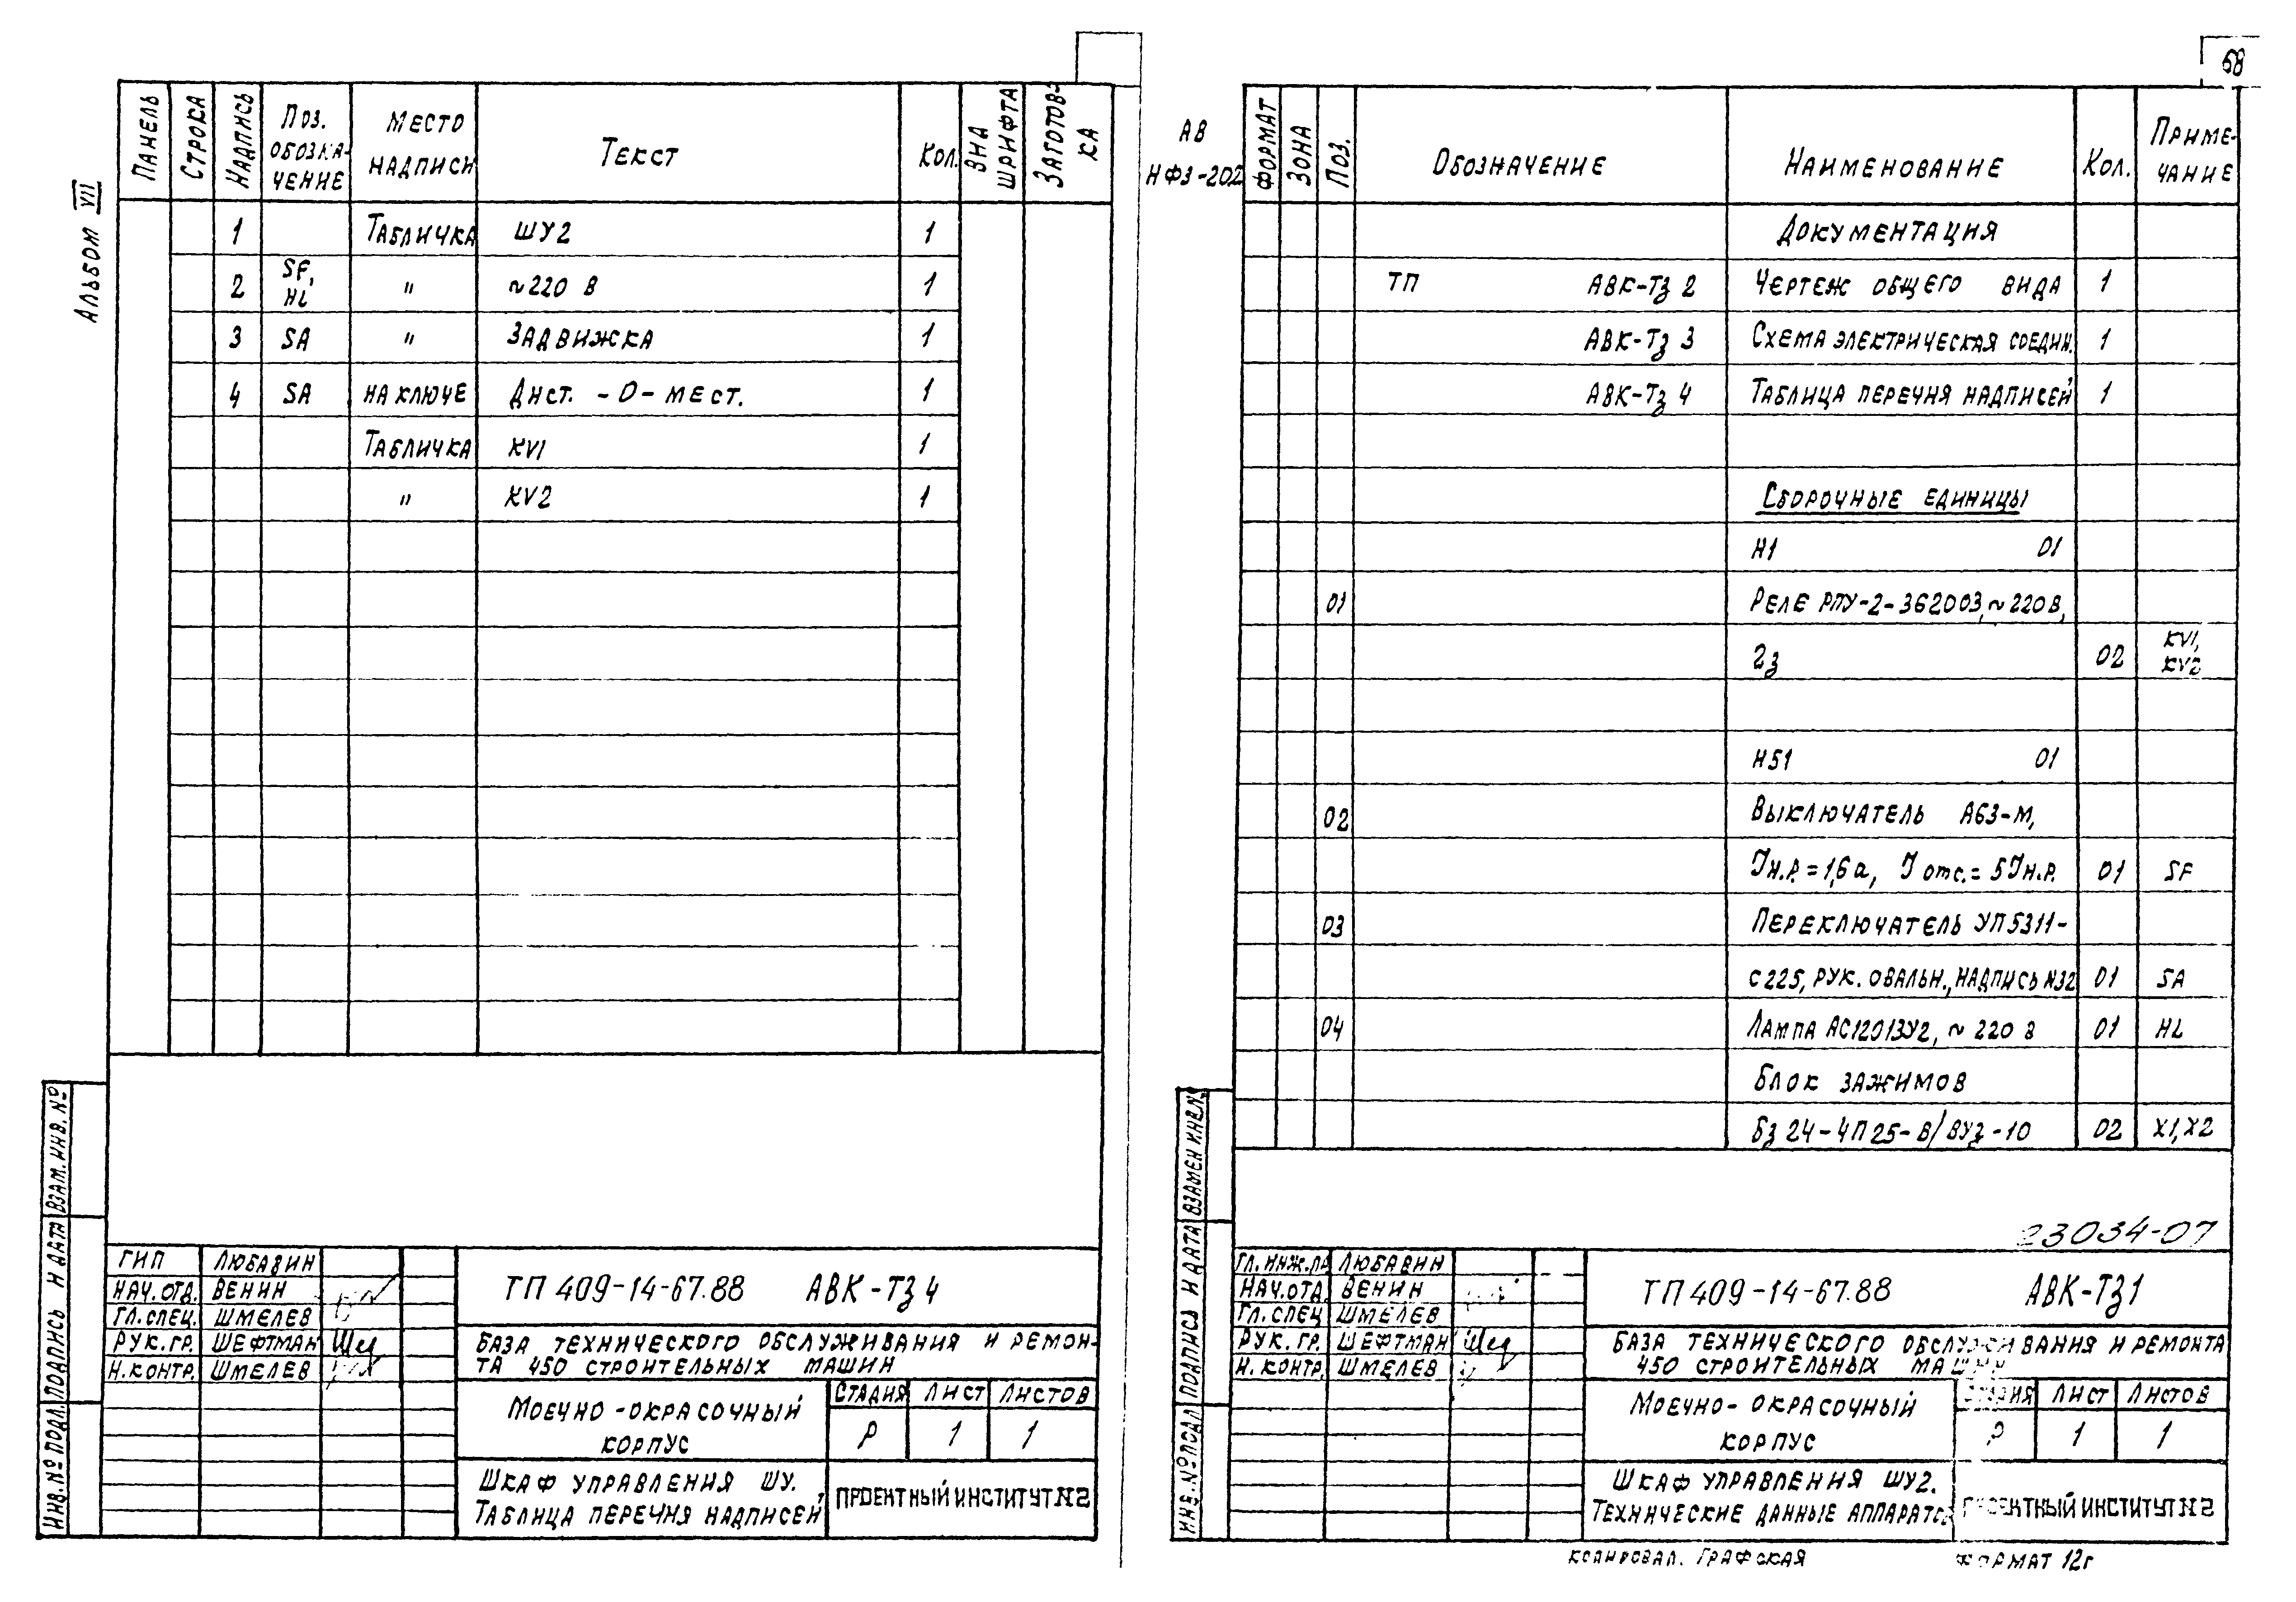 Альбом VII
Панель Строка Надпись Поз. обозна-чение Место надписи Текст Кол. Вид шрифта Заготов-ка
1 Табличка ШУ2 1
2 SF, HL " ~220 В 1
3 SA " Задвижка 1
4 SA на ключе Дист. -О- мест. 1
Табличка KV1 1
" KV2 1
Взам. инв. №
Подпись и дата
Инв. № подл.
ГИП Любавин
Нач. отд. Венин
Гл. спец. Шмелев
Рук. гр. Шефтман
Н. контр. Шмелев
ТП 409-14-67.88 АВК-ТЗ 4
База технического обслуживания и ремон-
та 450 строительных машин
Моечно-окрасочный
корпус
Стадия Лист Листов
Р 1 1
Шкаф управления ШУ.
Таблица перечня надписей
Проектный институт №2
68
АВ
НФЗ-202
Формат Зона Поз. Обозначение Наименование Кол. Приме-чание
Документация
ТП АВК-ТЗ 2 Чертеж общего вида 1
АВК-ТЗ 3 Схема электрическая соедин. 1
АВК-ТЗ 4 Таблица перечня надписей 1
Сборочные единицы
Н1 01
01 Реле РПУ-2-362003, ~220В,
2з 02 KV1, KV2
Н51 01
02 Выключатель А63-М,
Iн.р. = 1,6а, I отс. = 5Iн.р. 01 SF
03 Переключатель УП5311-
с225, рук. овальн., надпись №32 01 SA
04 Лампа АС12013У2, ~ 220 В 01 HL
Блок зажимов
БЗ 24-4П25-В/ВУЗ-10 02 X1, X2
23034-07
Взамен инв.№
Подпись и дата
Инв. № подл
Гл. инж. пр. Любавин
Нач. отд. Венин
Гл. спец. Шмелев
Рук. гр. Шефтман
Н. контр. Шмелев
ТП 409-14-67.88 АВК-ТЗ1
База технического обслуживания и ремонта
450 строительных машин
Моечно-окрасочный
корпус
Стадия Лист Листов
Р 1 1
Шкаф управления ШУ2.
Технические данные аппаратов
Проектный институт №2
Копировал. Графская Формат 12г